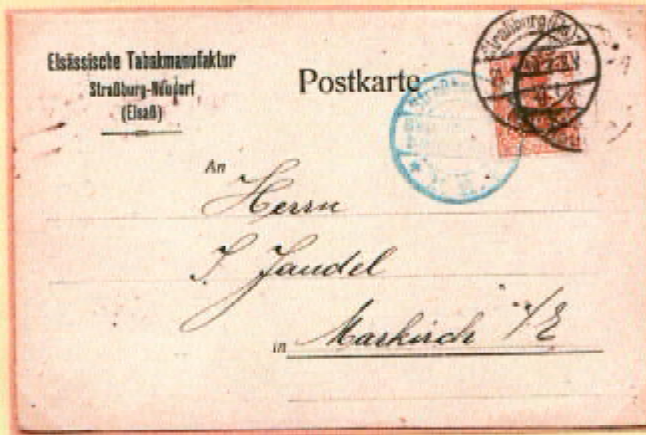 Elsässische Tabakmanufaktur
Straßburg-Neudorf
(Elsaß)
Postkarte
Straßburg (Els)
An
Herrn
J. Jandel
in Markirch i/E